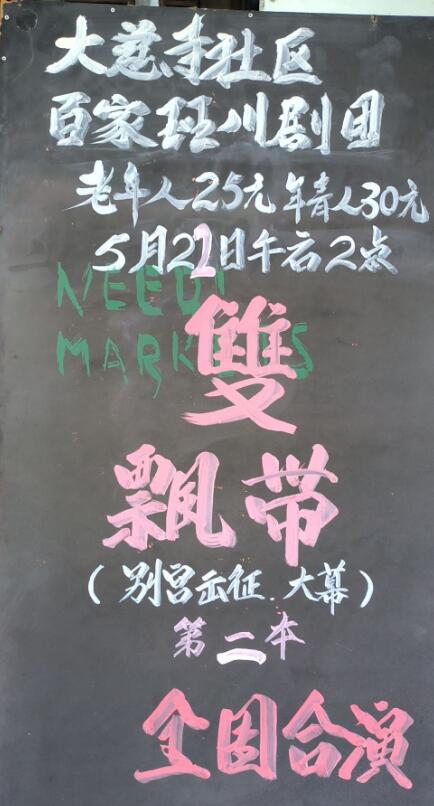 大慈寺社区
百家班川剧团
老年人25元 年青人30元
5月22日午后2点
NEED!
MARKERS
雙
飄带
(别宫出征.大幕)
第二本
全团合演